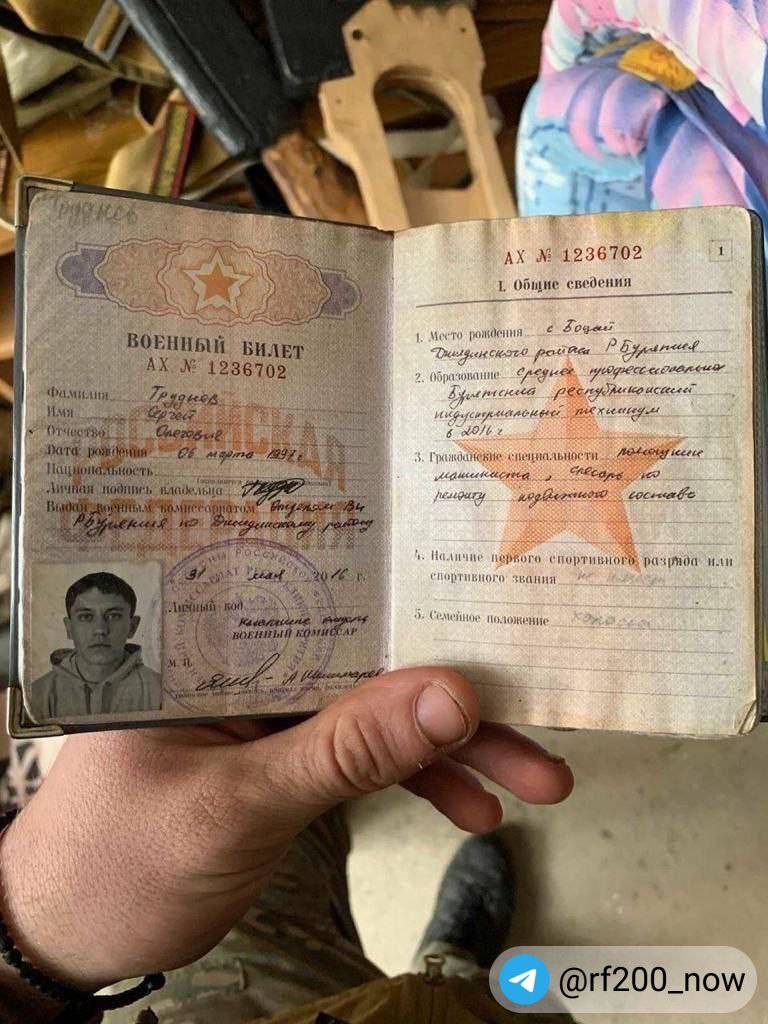 Труднов
ВОЕННЫЙ БИЛЕТ
АХ № 1236702
Фамилия Труднов
Имя Сергей
Отчество Олегович
Дата рождения 06 марта 1997 г
Национальность
Личная подпись владельца
Выдан военным комиссариатом отделом ВК
Р Бурятия по Джидинскому району
31 мая 2016 г.
Личный код
ВОЕННЫЙ КОМИССАР
М. П.
РОССИЙСКАЯ
АХ № 1236702
1
I. Общие сведения
1. Место рождения с Боций
Джидинского района Р Бурятия
2. Образование среднее профессиональное
Бурятский республиканский
индустриальный техникум
в 2016 г
3. Гражданские специальности помощник
машиниста, слесарь по
ремонту подвижного состава
4. Наличие первого спортивного разряда или
спортивного звания не имеет
5. Семейное положение холост
@rf200_now